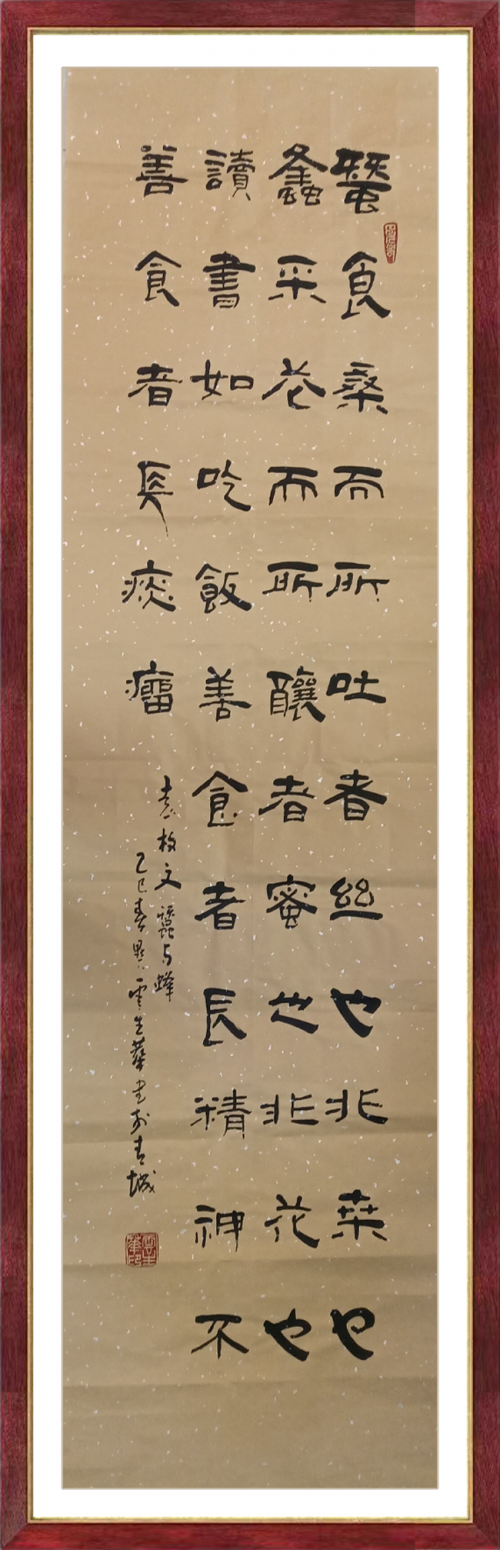 蠶食桑而所吐者丝也非桑也
蠭采花而所釀者蜜也非花也
讀書如吃飯善食者長精神不
善食者長痰瘤
袁枚文蠶与蜂
乙巳春雲生華書於青城
雲生華印